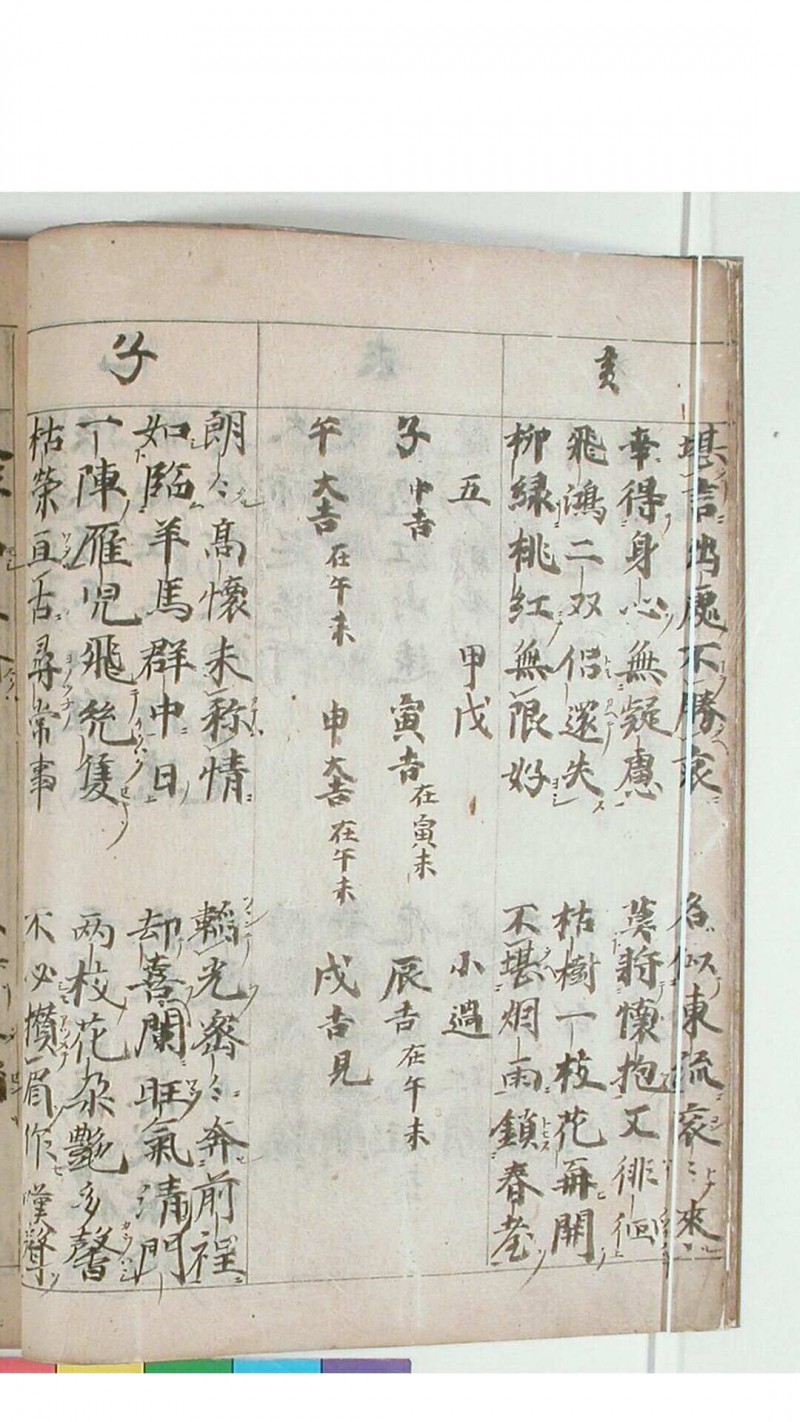 亥
堪言出處不勝哀 名似東流衮〻來
幸得身心無疑慮 莫將懷抱又徘徊
飛鴻二双侶還失 枯樹一枝花再開
柳緑桃紅無限好 不堪烟雨鎖春
五 甲戌 小過
子 中吉 寅吉 在寅未 辰吉 在午未
午 大吉 在午未 申 大吉 在午未 戌吉見
子
朗〻高懷未称情 韜光密〻奔前程
如臨羊馬群中日 却喜闌旺氣清門
一陣雁児飛隻 两枝花朶艶多馨
枯榮直舌尋常事 不必攅眉作嘆聲